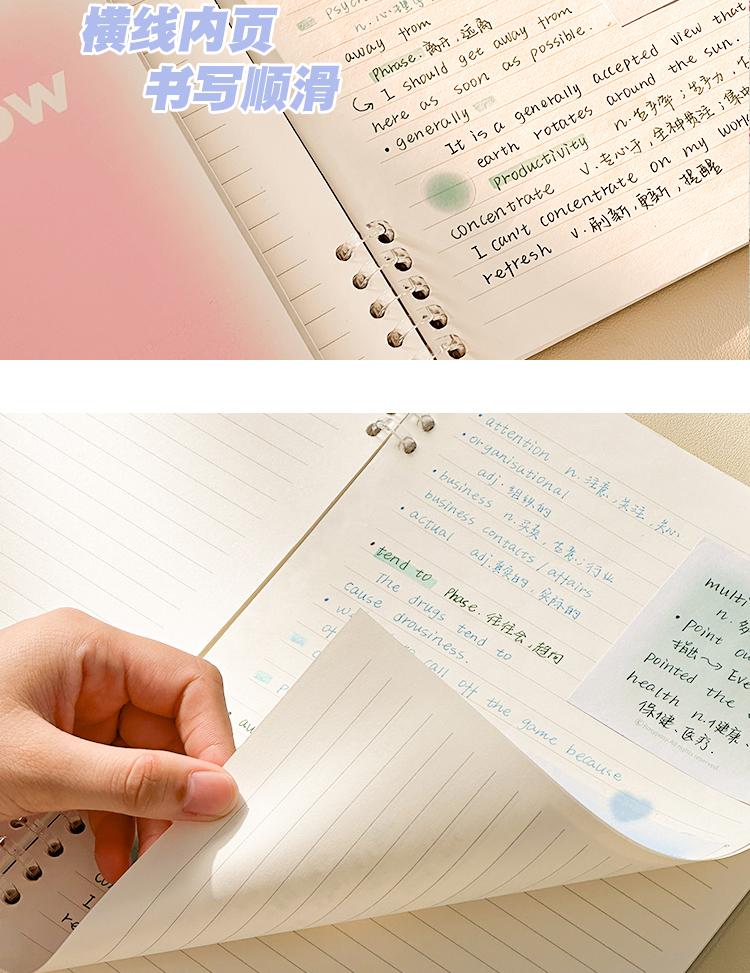 横线内页
书写顺滑
ow
psyc
n.心理学
away from
Phrase.离开,远离
I should get away from
here as soon as possible.
• generally
It is a generally accepted view that
earth rotates around the sun.
productivity n.生产率;生产力
concentrate v.专心于,全神贯注;集中
I can't concentrate on my work
refresh v.刷新,更新,提醒
• attention n.注意,关注,关心
• organisutional
adj.组织的
• business n.买卖,生意,行业
business contacts/affairs
• actual adj.真实的,实际的
• tend to Phase.往往会,趋向
The drugs tend to
cause drousiness.
• w
of
to call off the game because
p
• au
multi
n.多
• point ou
指出→ Eve
pointed the
health n.健康、
保健、医疗.
co
I
re